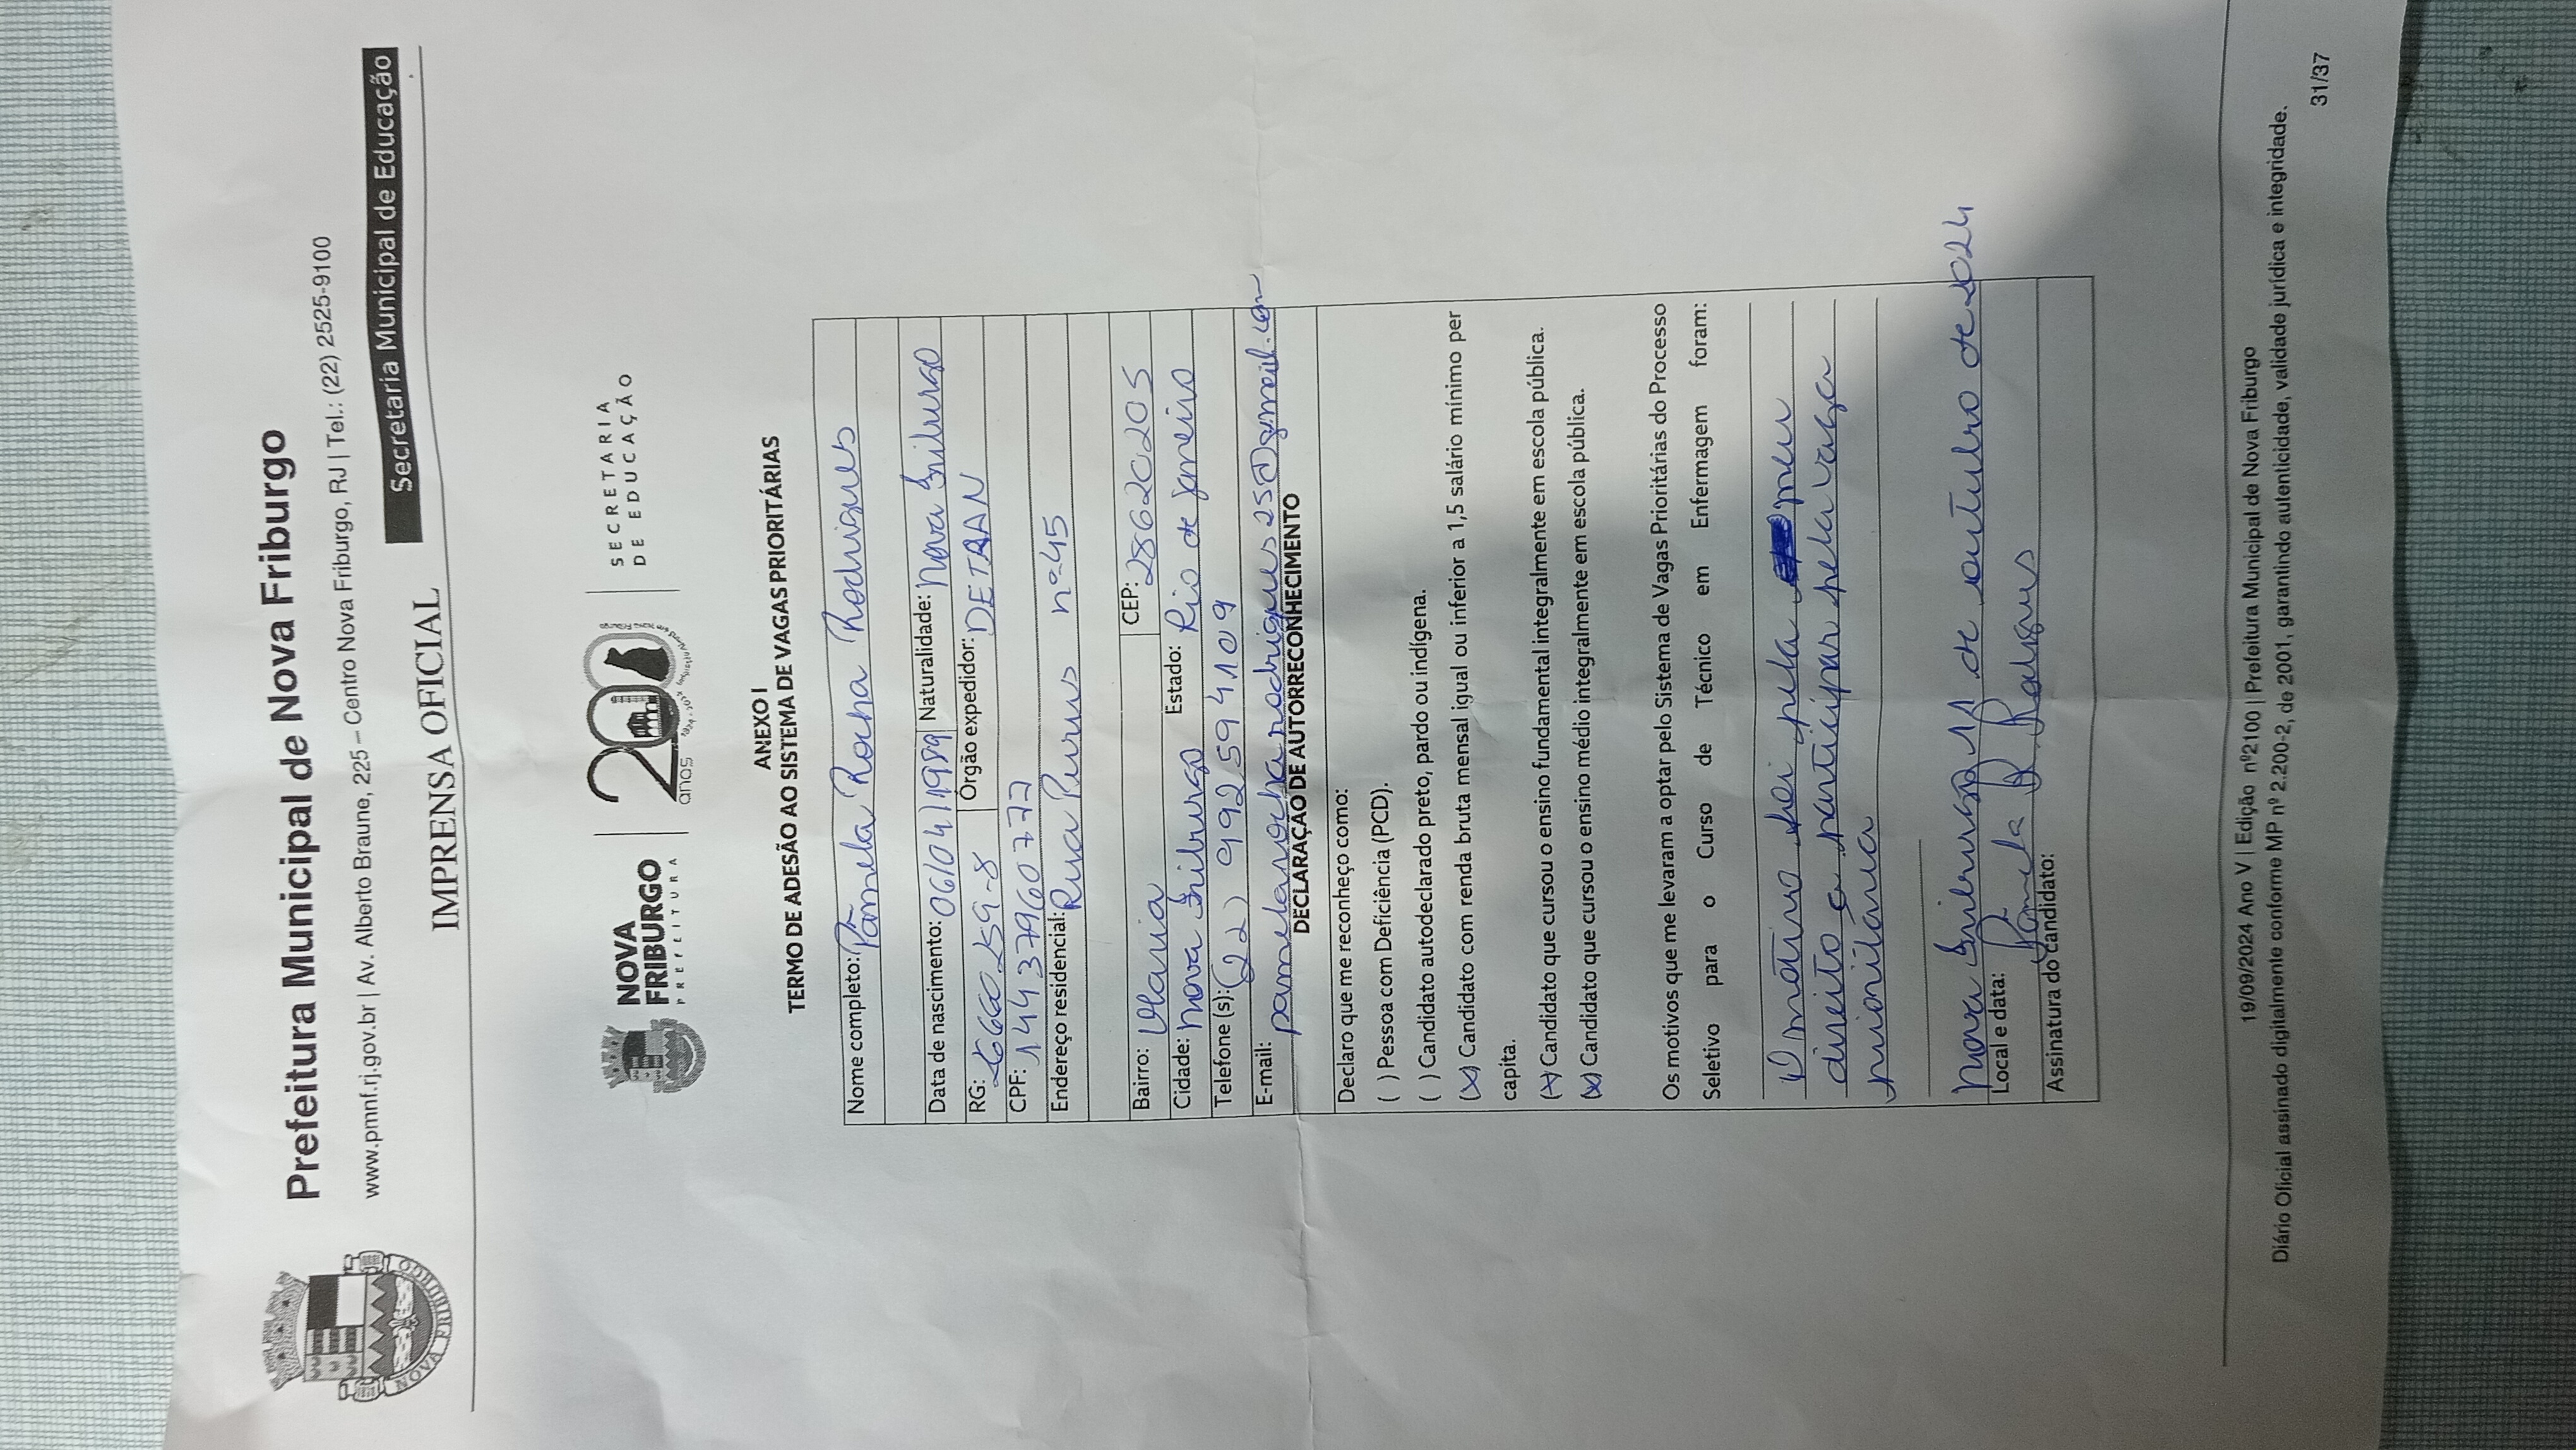 Prefeitura Municipal de Nova Friburgo
www.pmnf.rj.gov.br | Av. Alberto Braune, 225 – Centro Nova Friburgo, RJ | Tel.: (22) 2525-9100
Secretaria Municipal de Educação
IMPRENSA OFICIAL
NOVA FRIBURGO
NOVA
FRIBURGO
PREFEITURA
200
anos
1824 - 2024
SECRETARIA
DE EDUCAÇÃO
ANEXO I
TERMO DE ADESÃO AO SISTEMA DE VAGAS PRIORITÁRIAS
Nome completo: Pâmela Rocha Rodrigues
Data de nascimento: 06/04/1989 Naturalidade: Nova Friburgo
RG: 26660.259-8 Órgão expedidor: DETRAN
CPF: 14437960777
Endereço residencial: Rua Purus nº 45
Bairro: Olaria CEP: 28620205
Cidade: Nova Friburgo Estado: Rio de Janeiro
Telefone (s): (22) 992594109
E-mail: pamelarocharodrigues25@gmail.com
DECLARAÇÃO DE AUTORRECONHECIMENTO
Declaro que me reconheço como:
( ) Pessoa com Deficiência (PCD).
( ) Candidato autodeclarado preto, pardo ou indígena.
(X) Candidato com renda bruta mensal igual ou inferior a 1,5 salário mínimo per
capita.
(X) Candidato que cursou o ensino fundamental integralmente em escola pública.
(X) Candidato que cursou o ensino médio integralmente em escola pública.
Os motivos que me levaram a optar pelo Sistema de Vagas Prioritárias do Processo
Seletivo para o Curso de Técnico em Enfermagem foram:
O motivo foi pela meu
direito a participar pela vaga
prioritária
Nova Friburgo 11 de outubro de 2024
Local e data:
Pâmela R. Rodrigues
Assinatura do candidato:
19/09/2024 Ano V | Edição nº2100 | Prefeitura Municipal de Nova Friburgo
Diário Oficial assinado digitalmente conforme MP nº 2.200-2, de 2001, garantindo autenticidade, validade jurídica e integridade.
31/37